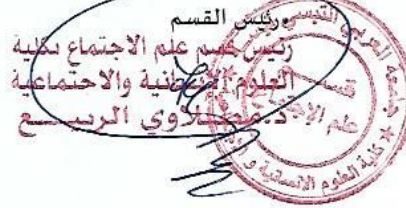 ورئيس القسم
رئيس قسم علم الاجتماع بكلية
العلوم الإنسانية والاجتماعية
الربيع
جامعة العربي التبسي
قسم
علم الاجتماع
كلية العلوم الانسانية و